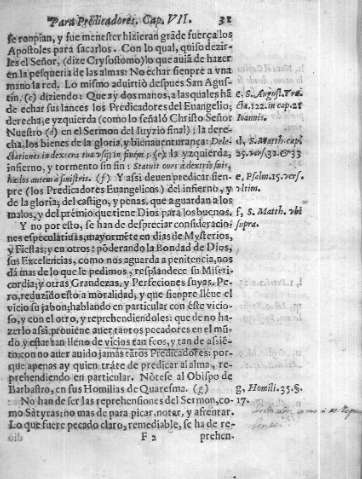 Para Predicadores, Cap. VII. 31
se rompian, y fue menester hizieran grãde fuerça los
Apostoles para sacarlos. Con lo qual, quiso dezir-
les el Señor, (dize Crysostomo) lo que auiã de hazer
en la pesqueria de las almas: No echar siempre a vna
mano la red. Lo mismo aduirtiò despues San Agus-
tin, (c) diziendo: Que ay dos manos, a las quales hã
de echar sus lances los Predicadores del Euangelio;
derecha, e yzquierda (como lo señalò Christo Señor
Nuestro (d) en el Sermon del Iuyzio final) : la dere-
cha, los bienes de la gloria, y bienauenturança: Dele-
ctationes in dextera tua vsque in finem: (e) la yzquierda,
infierno, y tormento sin fin: Statuit oues à dextris suis,
hœdos autem à sinistris. (f) Y assi deuen predicar siem-
pre (los Predicadores Euangelicos) del infierno, y
de la gloria; del castigo, y penas, que aguardan a los
malos, y del premio que tiene Dios para los buenos.
Y no por esto, se han de despreciar consideracio-
nes especulatiuas, mayormẽte en dias de Mysterios,
y Fiestas; y en otros: põderando la Bondad de Dios,
sus Excelencias, como nos aguarda a penitencia, nos
dà mas de lo que le pedimos, resplãdece su Miseri-
cordia; y otras Grandezas, y Perfeciones suyas. Pe-
ro, reduzido esto a moralidad, y que siempre lleue el
vicio su jabon; hablando en particular con este vicio-
so, y con el otro, y reprehendiendoles: que de no ha-
zerlo assi, prouiene auer tãtos pecadores en el mũ-
do, y estar tan lleno de vicios tan feos, y tan de assiẽ-
to; con no auer auido jamàs tãtos Predicadores: por-
que apenas ay quien trate de predicar al alma, re-
prehendiendo en particular. Nòtese al Obispo de
Barbastro, en sus Homilias de Quaresma. (g)
No han de ser las reprehensiones del Sermon, co-
mo Satyras; no mas de para picar, notar, y afrentar.
Lo que fuere pecado claro, remediable, se ha de re-
F 2 prehen-
c, S. August. Tra-
cta. 122. in cap. 21
Ioannis.
d, S. Matth. cap.
25. vers. 32. & 33
e, Psalm. 15. vers.
vltim.
f, S. Matth. vbi
supra.
g, Homili. 35. §.
17.